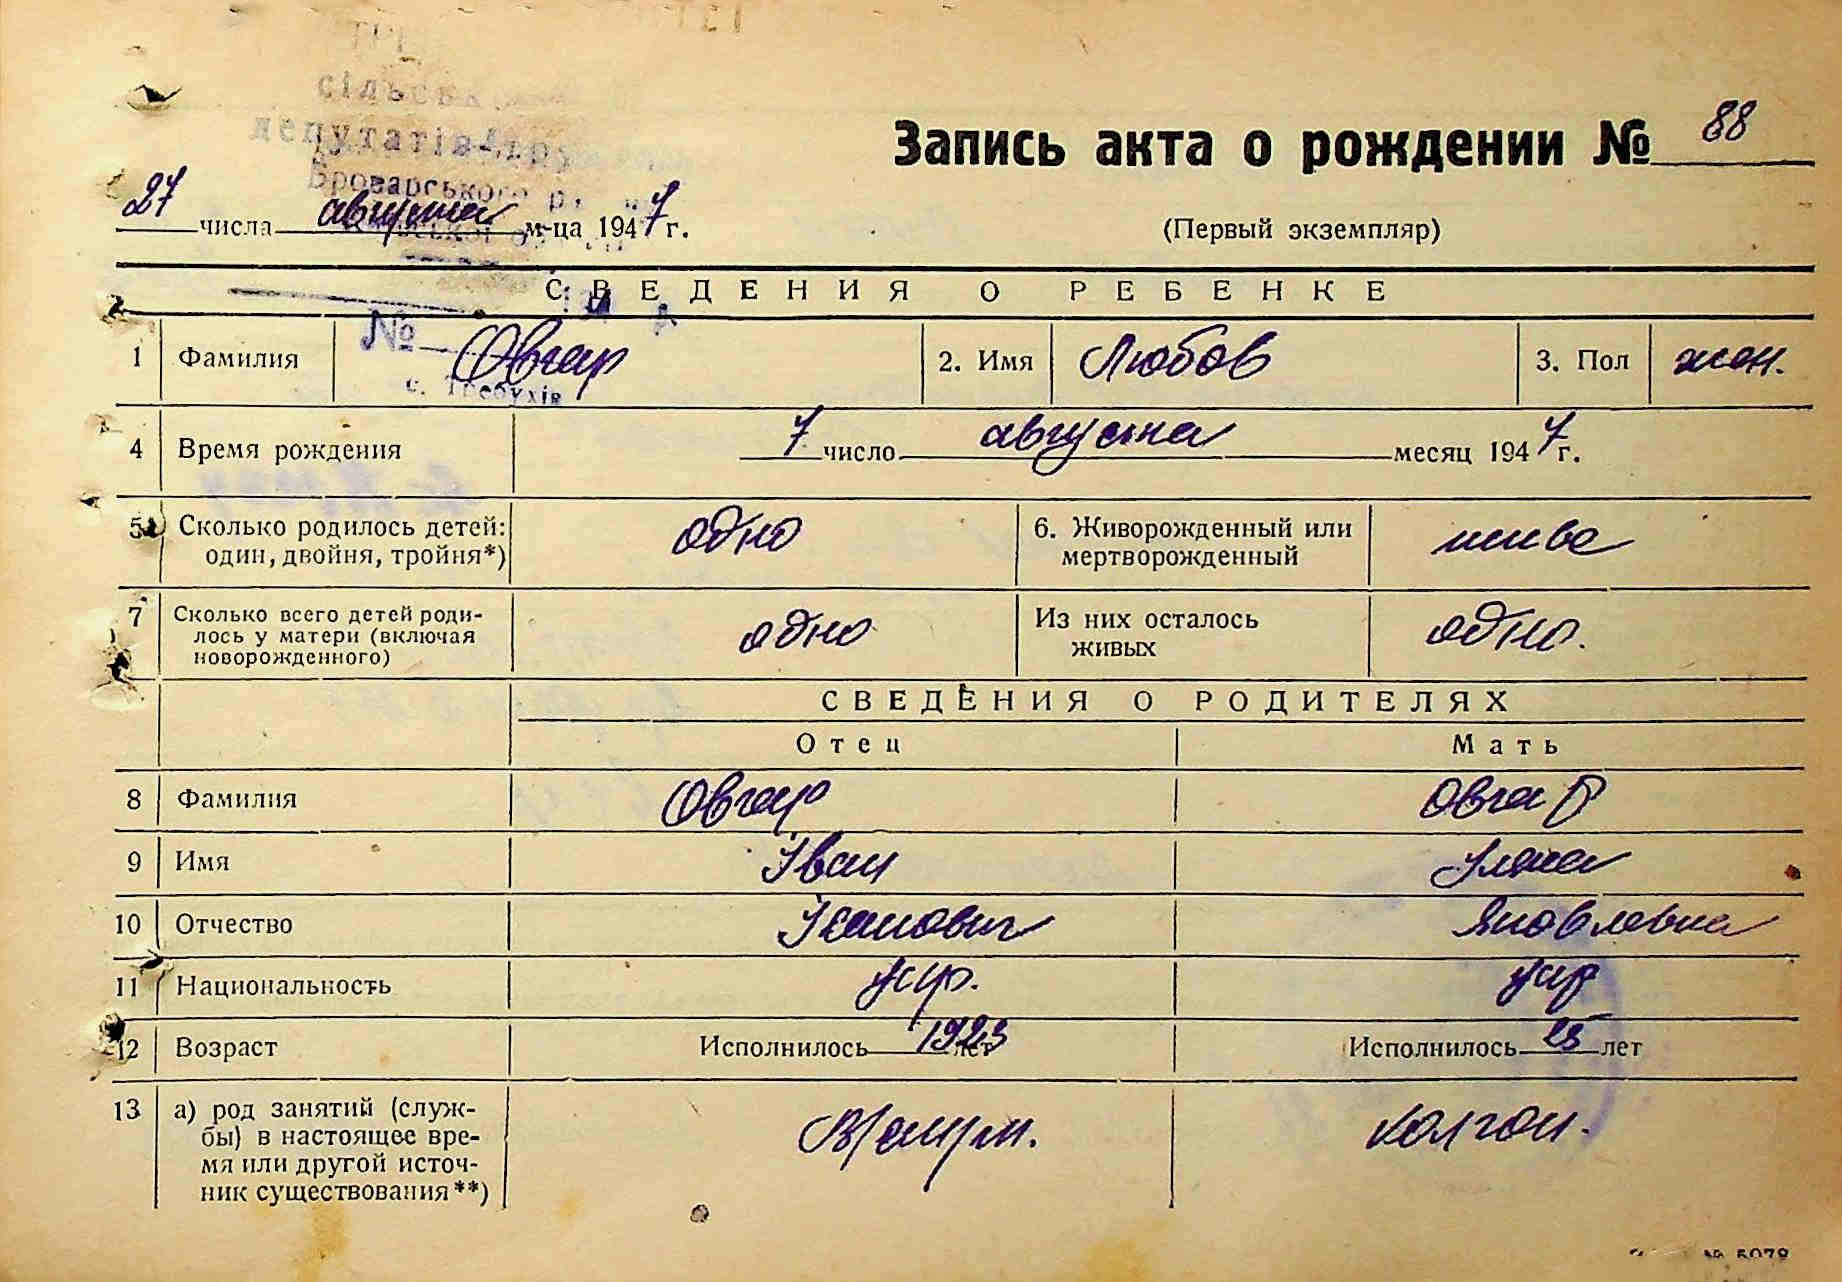 сільсь
депутатів тру
Броварського р
Запись акта о рождении № 88
27 числа августа м-ца 1947 г.
(Первый экземпляр)
СВЕДЕНИЯ О РЕБЕНКЕ
№
1 Фамилия Овчар 2. Имя Любов 3. Пол жен.
с. Требухів
4 Время рождения 7 число августа месяц 1947 г.
5 Сколько родилось детей: один, двойня, тройня*) одно 6. Живорожденный или мертворожденный живе
7 Сколько всего детей роди-
лось у матери (включая
новорожденного) одно Из них осталось живых одно.
СВЕДЕНИЯ О РОДИТЕЛЯХ
Отец Мать
8 Фамилия Овчар Овчар
9 Имя Іван Уляна
10 Отчество Іванович Яковлевна
11 Национальность укр. укр
12 Возраст Исполнилось 1923 лет Исполнилось 25 лет
13 а) род занятий (служ-
бы) в настоящее вре-
мя или другой источ-
ник существования**) колгоп.
№ 5078